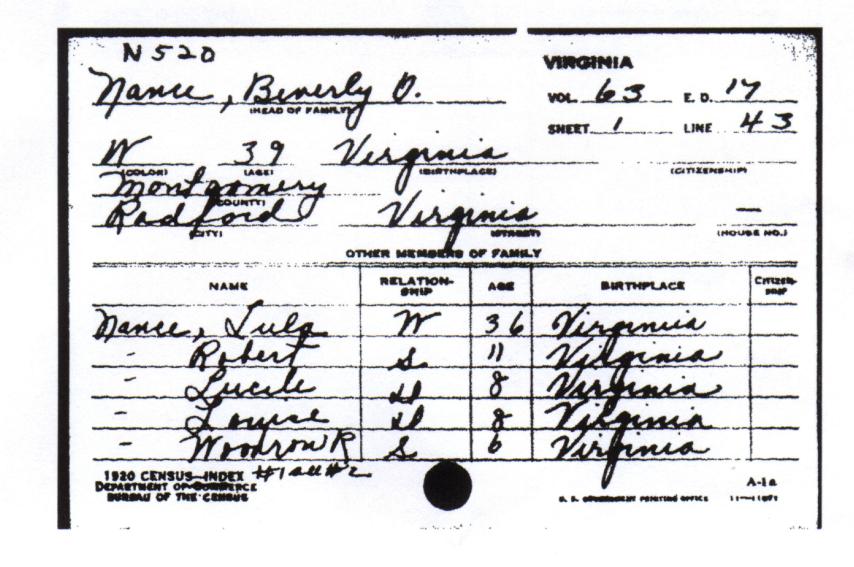 N 520
VIRGINIA
Nance, Beverly O.
(HEAD OF FAMILY)
VOL. 63 E. D. 17
SHEET 1 LINE 43
W 39 Virginia
(COLOR) (AGE) (BIRTHPLACE) (CITIZENSHIP)
Montgomery
(COUNTY)
Radford Virginia —
(CITY) (STREET) (HOUSE NO.)
OTHER MEMBERS OF FAMILY
NAME RELATION-SHIP AGE BIRTHPLACE Citizen-ship
Nance, Lula W 36 Virginia
- Robert S 11 Virginia
- Lucile D 8 Virginia
- Louise D 8 Virginia
- Woodrow R S 6 Virginia
1920 CENSUS—INDEX #1 #2
DEPARTMENT OF COMMERCE
BUREAU OF THE CENSUS
A-1a
U. S. GOVERNMENT PRINTING OFFICE